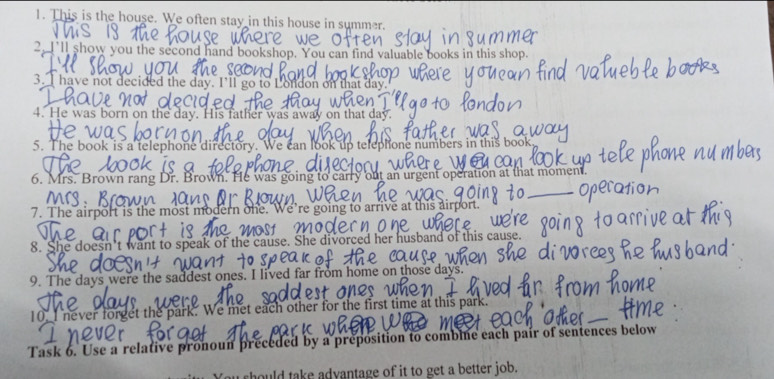 1. This is the house. We often stay in this house in summer.
This is the house where we often stay in summer
2. I'll show you the second hand bookshop. You can find valuable books in this shop.
I'll show you the second hand bookshop where you can find valueble books
3. I have not decided the day. I'll go to London on that day.
I have not decided the thay when I'll go to London
4. He was born on the day. His father was away on that day.
He was born on the day when his father was away
5. The book is a telephone directory. We can look up telephone numbers in this book.
The book is a telephone directory where we can look up telephone numbers
6. Mrs. Brown rang Dr. Brown. He was going to carry out an urgent operation at that moment.
Mrs. Brown rang Dr Brown, when he was going to ___ operation
7. The airport is the most modern one. We're going to arrive at this airport.
The airport is the most modern one where we're going to arrive at this
8. She doesn't want to speak of the cause. She divorced her husband of this cause.
She doesn't want to speak of the cause when she divorces he husband.
9. The days were the saddest ones. I lived far from home on those days.
The days were the saddest ones when I lived far from home
10. I never forget the park. We met each other for the first time at this park.
I never forget the park where we meet each other — time.
Task 6. Use a relative pronoun preceded by a preposition to combine each pair of sentences below
You should take advantage of it to get a better job.